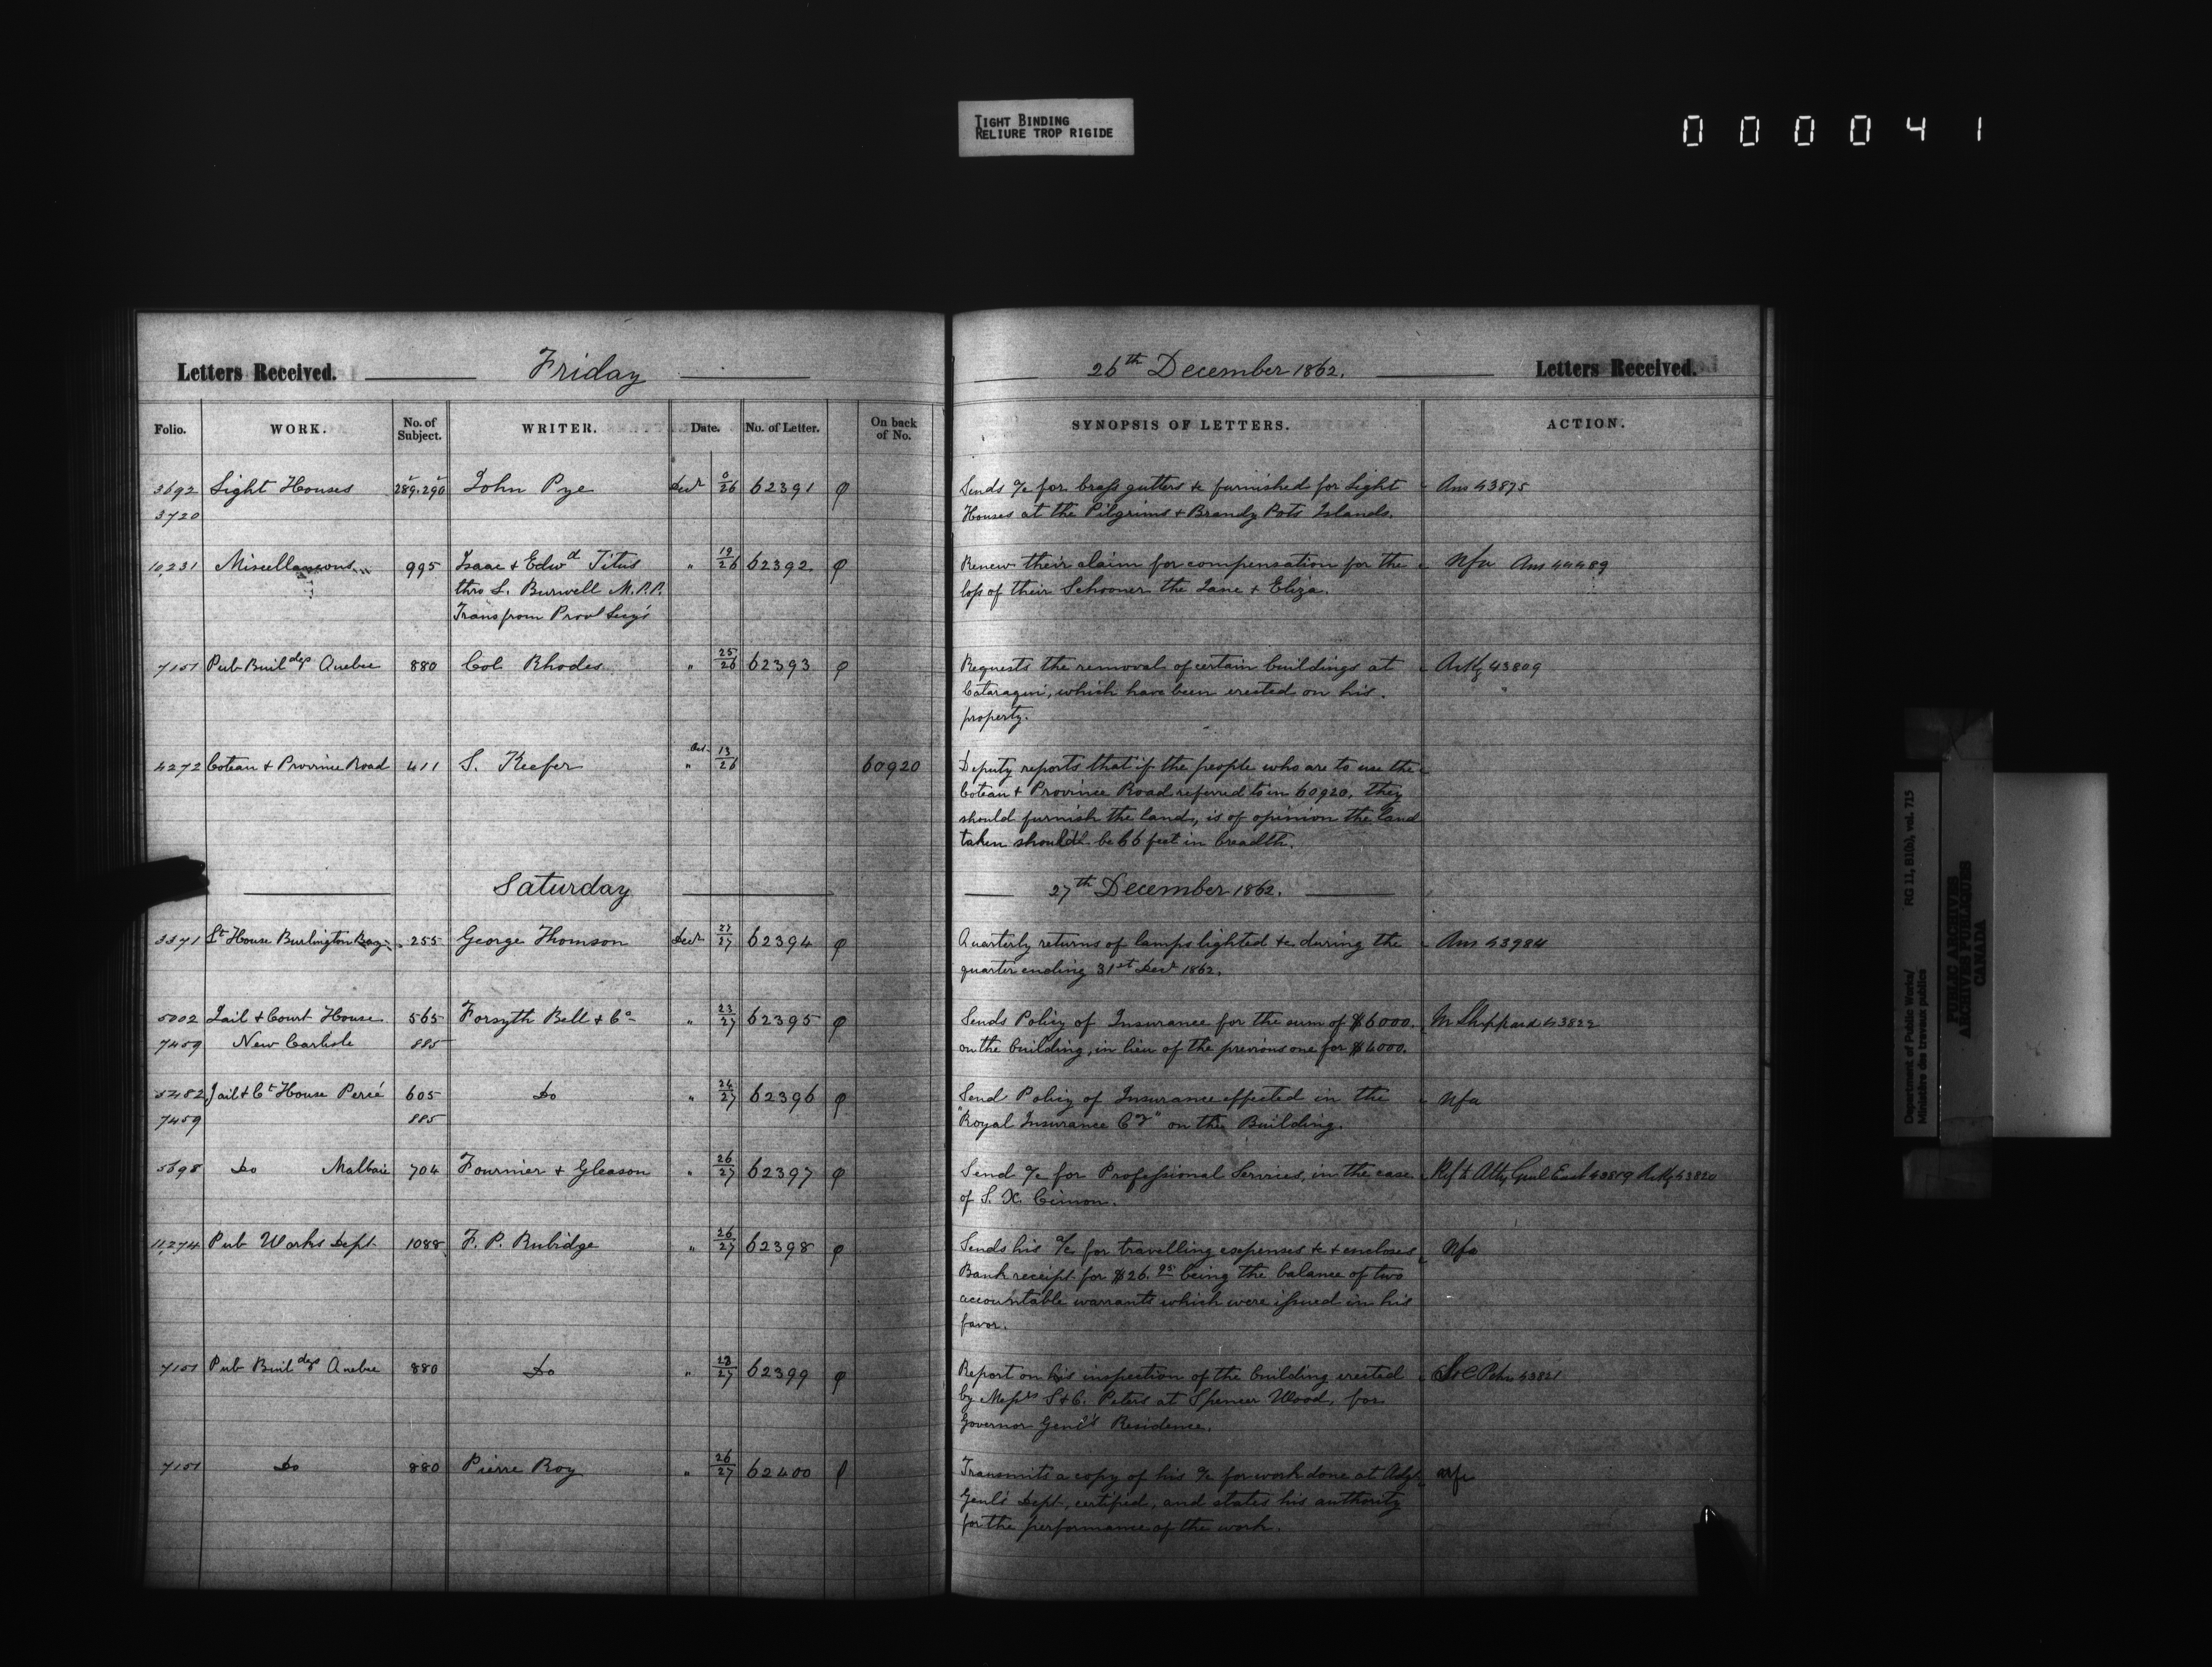 TIGHT BINDING
RELIURE TROP RIGIDE
000041
Letters Received. Friday 26th December 1862. Letters Received.
Folio. WORK. No. of Subject. WRITER. Date. No. of Letter. On back of No. SYNOPSIS OF LETTERS. ACTION.
3692 Light Houses 289.290 John Pye Decr 0/26 62391 φ Sends a/c for brass gutters &c furnished for Light Ans 43875
3720 Houses at the Pilgrims & Brandy Pots Islands.
10,231 Miscellaneous 995 Isaac & Edwd Titus " 19/26 62392 φ Renew their claim for compensation for the Nfa Ans 44489
thro L. Burwell M.P.P. loss of their Schooner the Jane & Eliza.
Trans from Provl Secy's
7151 Pub Buildgs Quebec 880 Col Rhodes " 25/26 62393 φ Requests the removal of certain buildings at Ackg 43809
Cataraqui, which have been erected on his
property.
4272 Coteau & Province Road 411 S. Keefer Oct " 13/26 60920 Deputy reports that if the people who are to use the
Coteau & Province Road referred to in 60920, they
should furnish the land, is of opinion the land
taken should be 66 feet in breadth.
Saturday 27th December 1862.
3371 Lt House Burlington Bay 255 George Thomson Decr 27/27 62394 φ Quarterly returns of lamps lighted &c during the Ans 43984
quarter ending 31st Decr 1862.
5002 Jail & Court House 565 Forsyth Bell & Co " 23/27 62395 φ Sends Policy of Insurance for the sum of $6000. M Sheppard 43822
7459 New Carlisle 885 on the building, in lieu of the previous one for $4000.
5482 Jail & Ct House Percé 605 Do " 24/27 62396 φ Send Policy of Insurance effected in the Nfa
7459 885 "Royal Insurance Cy" on the Building.
5698 Do Malbaie 704 Fournier & Gleason " 26/27 62397 φ Send a/c for Professional Services, in the case Ref to Atty Genl East 43819 Ackg 43820
of S. X. Cimon.
11,274 Pub Works Dept 1088 F. P. Rubidge " 26/27 62398 φ Sends his a/c for travelling expenses &c & encloses Nfa
Bank receipt for $26.95 being the balance of two
accountable warrants which were issued in his
favor.
7151 Pub Buildgs Quebec 880 Do " 23/27 62399 φ Report on his inspection of the building erected S & C Peters 43821
by Messrs S & C. Peters at Spencer Wood, for
Governor Genl's Residence.
7151 Do 880 Pierre Roy " 26/27 62400 φ Transmits a copy of his a/c for work done at Adjt Nfa
Genl's Dept, certified, and states his authority
for the performance of the work.
Department of Public Works/ RG 11, B1(b), vol. 715
Ministère des travaux publics
PUBLIC ARCHIVES
ARCHIVES PUBLIQUES
CANADA